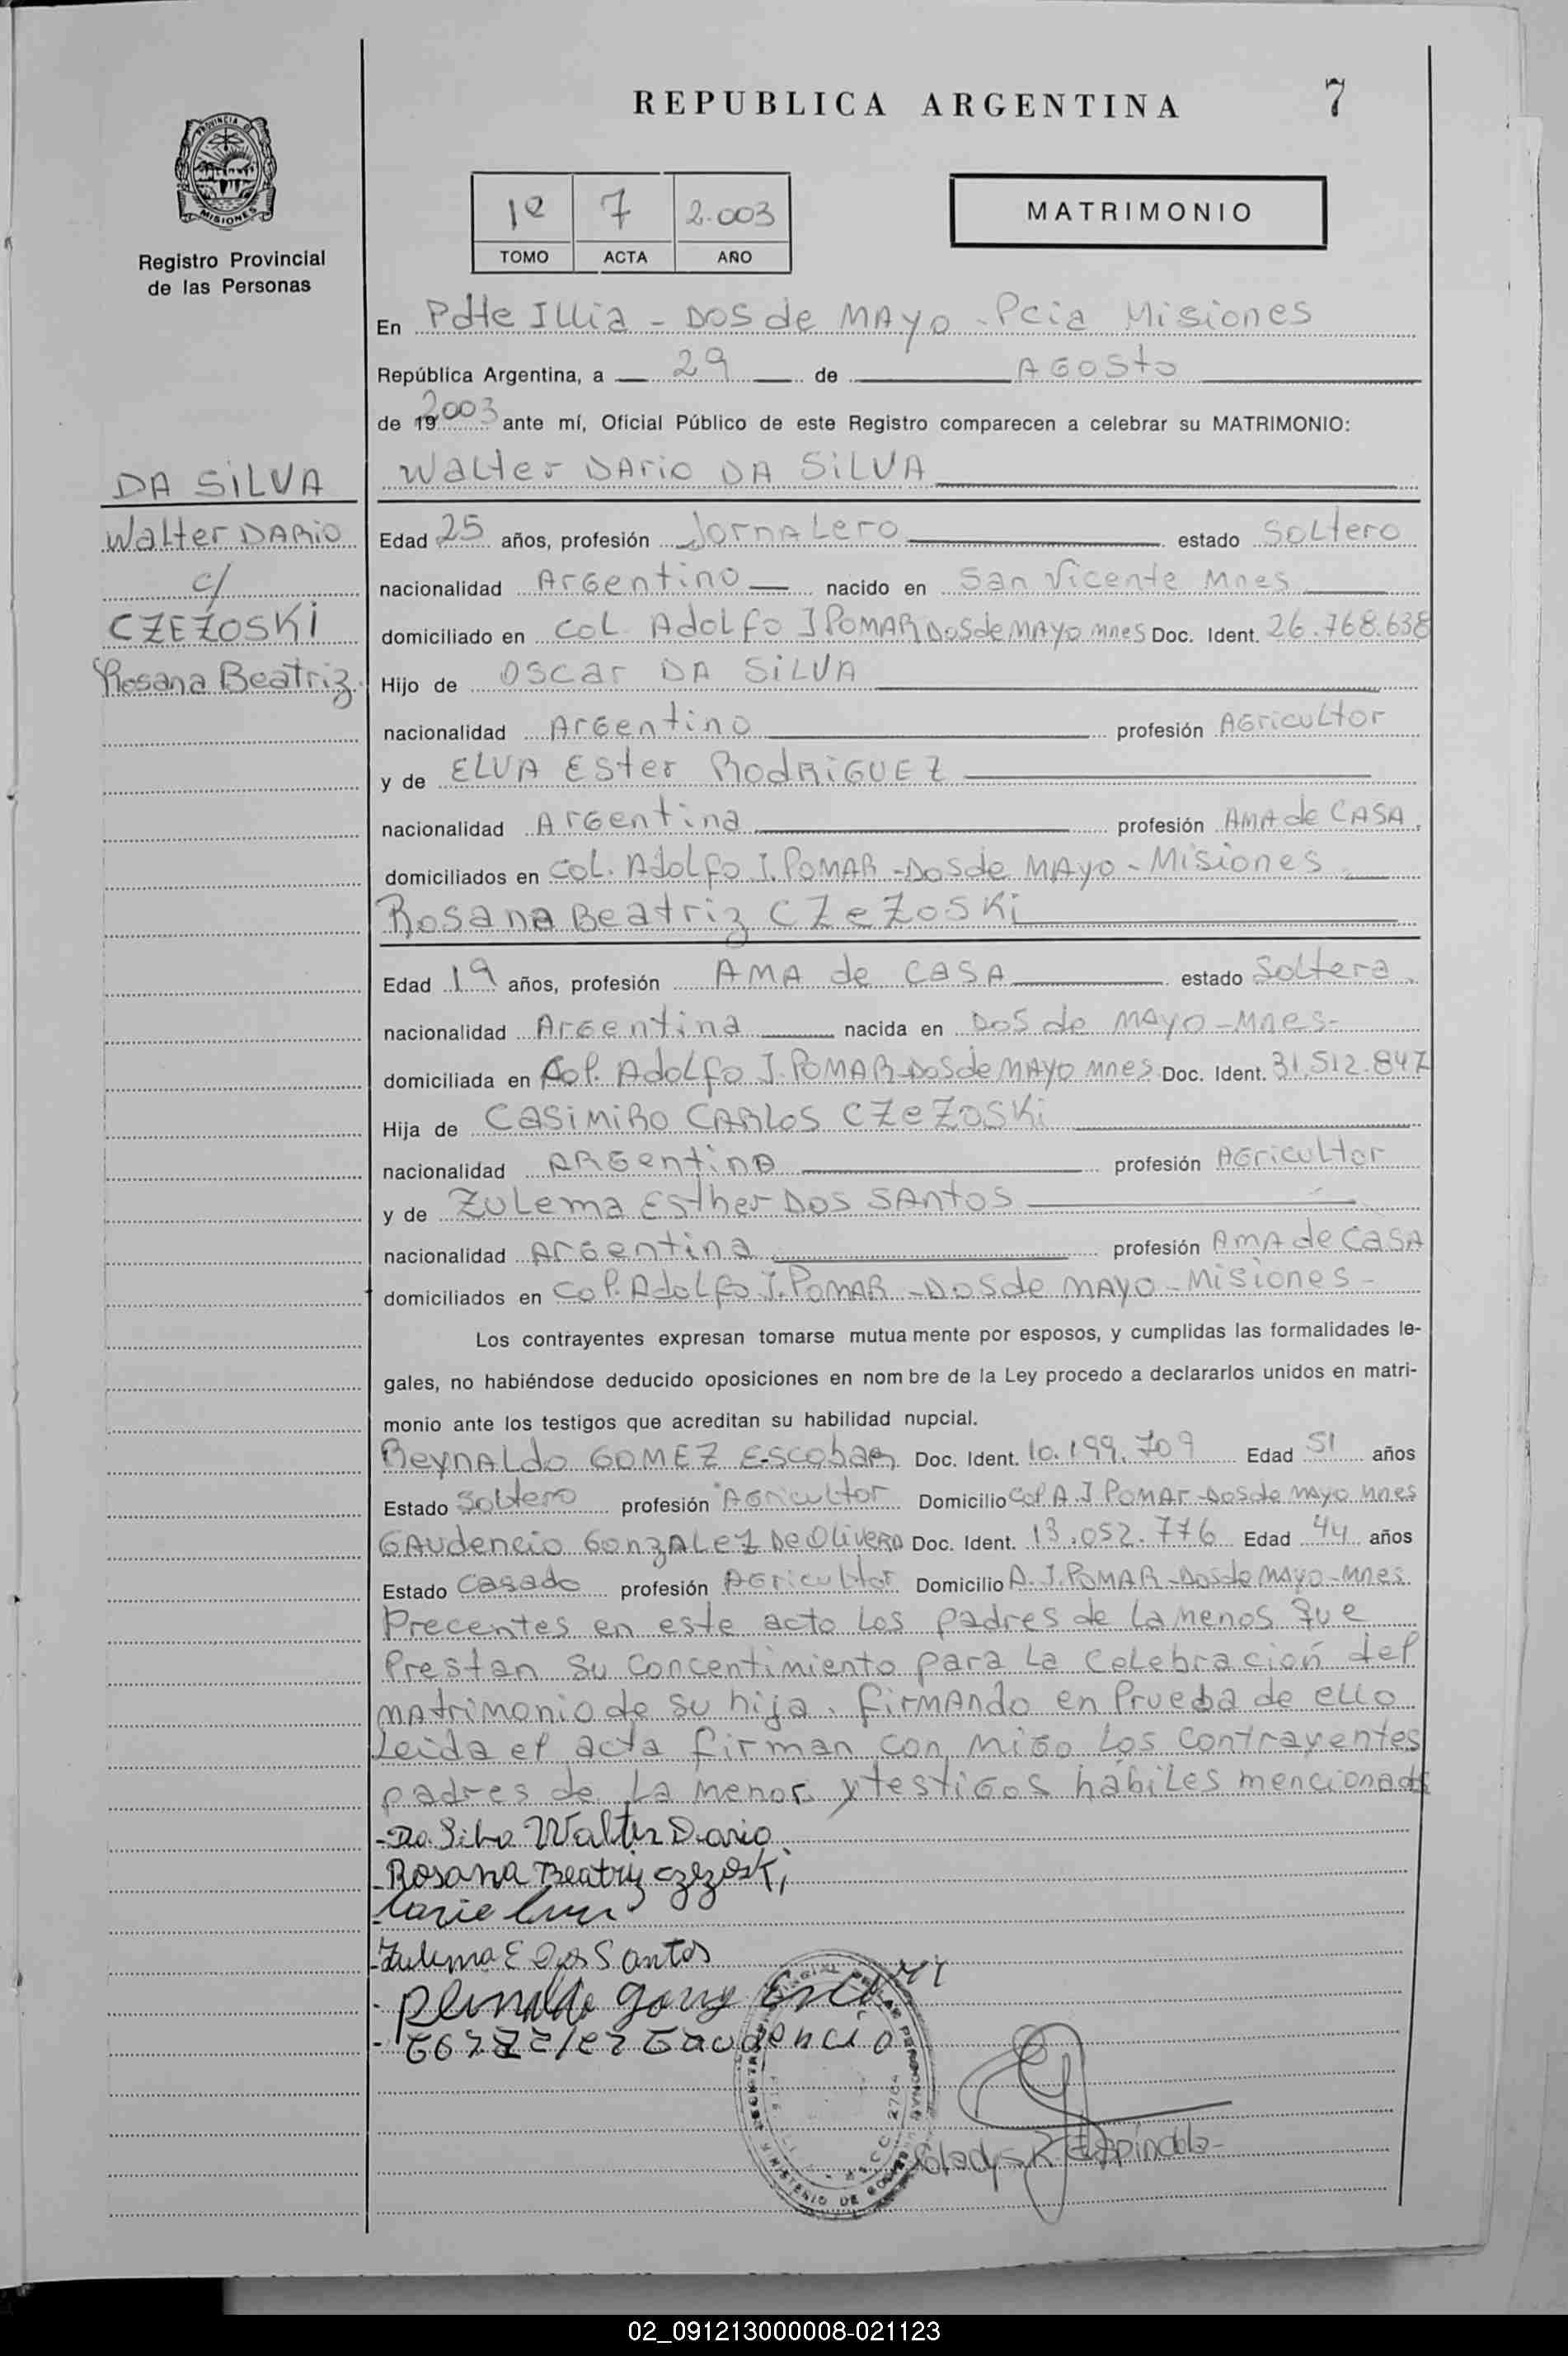 REPUBLICA ARGENTINA
7
PROVINCIA DE
MISIONES
Registro Provincial
de las Personas
1º 7 2.003
TOMO ACTA AÑO
MATRIMONIO
En Pdte Illia - DOS de MAYO - Pcia Misiones
República Argentina, a 29 de AGOSto
de 19 2003 ante mí, Oficial Público de este Registro comparecen a celebrar su MATRIMONIO:
Walter DArio DA SiLVA
DA SiLVA
Walter DARiO
c/
CZEZOSKi
Rosana Beatriz
Edad 25 años, profesión JornALero estado SoLtero
nacionalidad ArGentino nacido en San Vicente Mnes
domiciliado en CoL AdoLfo J POMAR DosdeMAYO MneS Doc. Ident. 26.768.638
Hijo de OScar DA SiLVA
nacionalidad ArGentino profesión AGricuLtor
y de ELVA ESter RodRiGUEZ
nacionalidad ArGentina profesión AMA de CASA
domiciliados en CoL. AdoLfo J. POMAR - Dosde MAYO - Misiones
Rosana Beatriz CZeZoSKi
Edad 19 años, profesión AMA de CASA estado SoLtera
nacionalidad ArGentina nacida en DoS de MAYO - Mnes-
domiciliada en Col. AdoLfo J. POMAR-DosdeMAYO MneS Doc. Ident. 31.512.847
Hija de CASiMiRO CARLoS CZeZoSKi
nacionalidad ARGentinA profesión AGricuLtor
y de ZULema Esther DoS SAntoS
nacionalidad ArGentina profesión AmA de CaSA
domiciliados en Col. AdoLfo J. POMAR - DoSde MAYO - Misiones -
Los contrayentes expresan tomarse mutua mente por esposos, y cumplidas las formalidades le-
gales, no habiéndose deducido oposiciones en nom bre de la Ley procedo a declararlos unidos en matri-
monio ante los testigos que acreditan su habilidad nupcial.
ReynALdo GOMEZ EscobaR Doc. Ident. 10.199.709 Edad 51 años
Estado SoLtero profesión AGricuLtor Domicilio Col A.J POMAr-DosdeMAYO Mnes
GAUdencio GonzALeZ DeOliveRA Doc. Ident. 13.052.776 Edad 44 años
Estado Casado profesión AGricuLtor Domicilio A.J.POMAR-DosdeMAYO-Mnes.
Precentes en este acto Los padres de La menos que
Prestan su concentimiento para La ceLebración del
mAtrimonio de su hija. firMAndo en Prueba de eLLo
Leida el acta firman con miGo Los contrayentes
padres de La menor y testiGos hábiLes mencionados
- Da Silva Walter Dario
- Rosana Beatriz czezoski
- Zulema E Dos Santos
- Gonzalez Gaudencio
Gladys R Espindola-
02_091213000008-021123